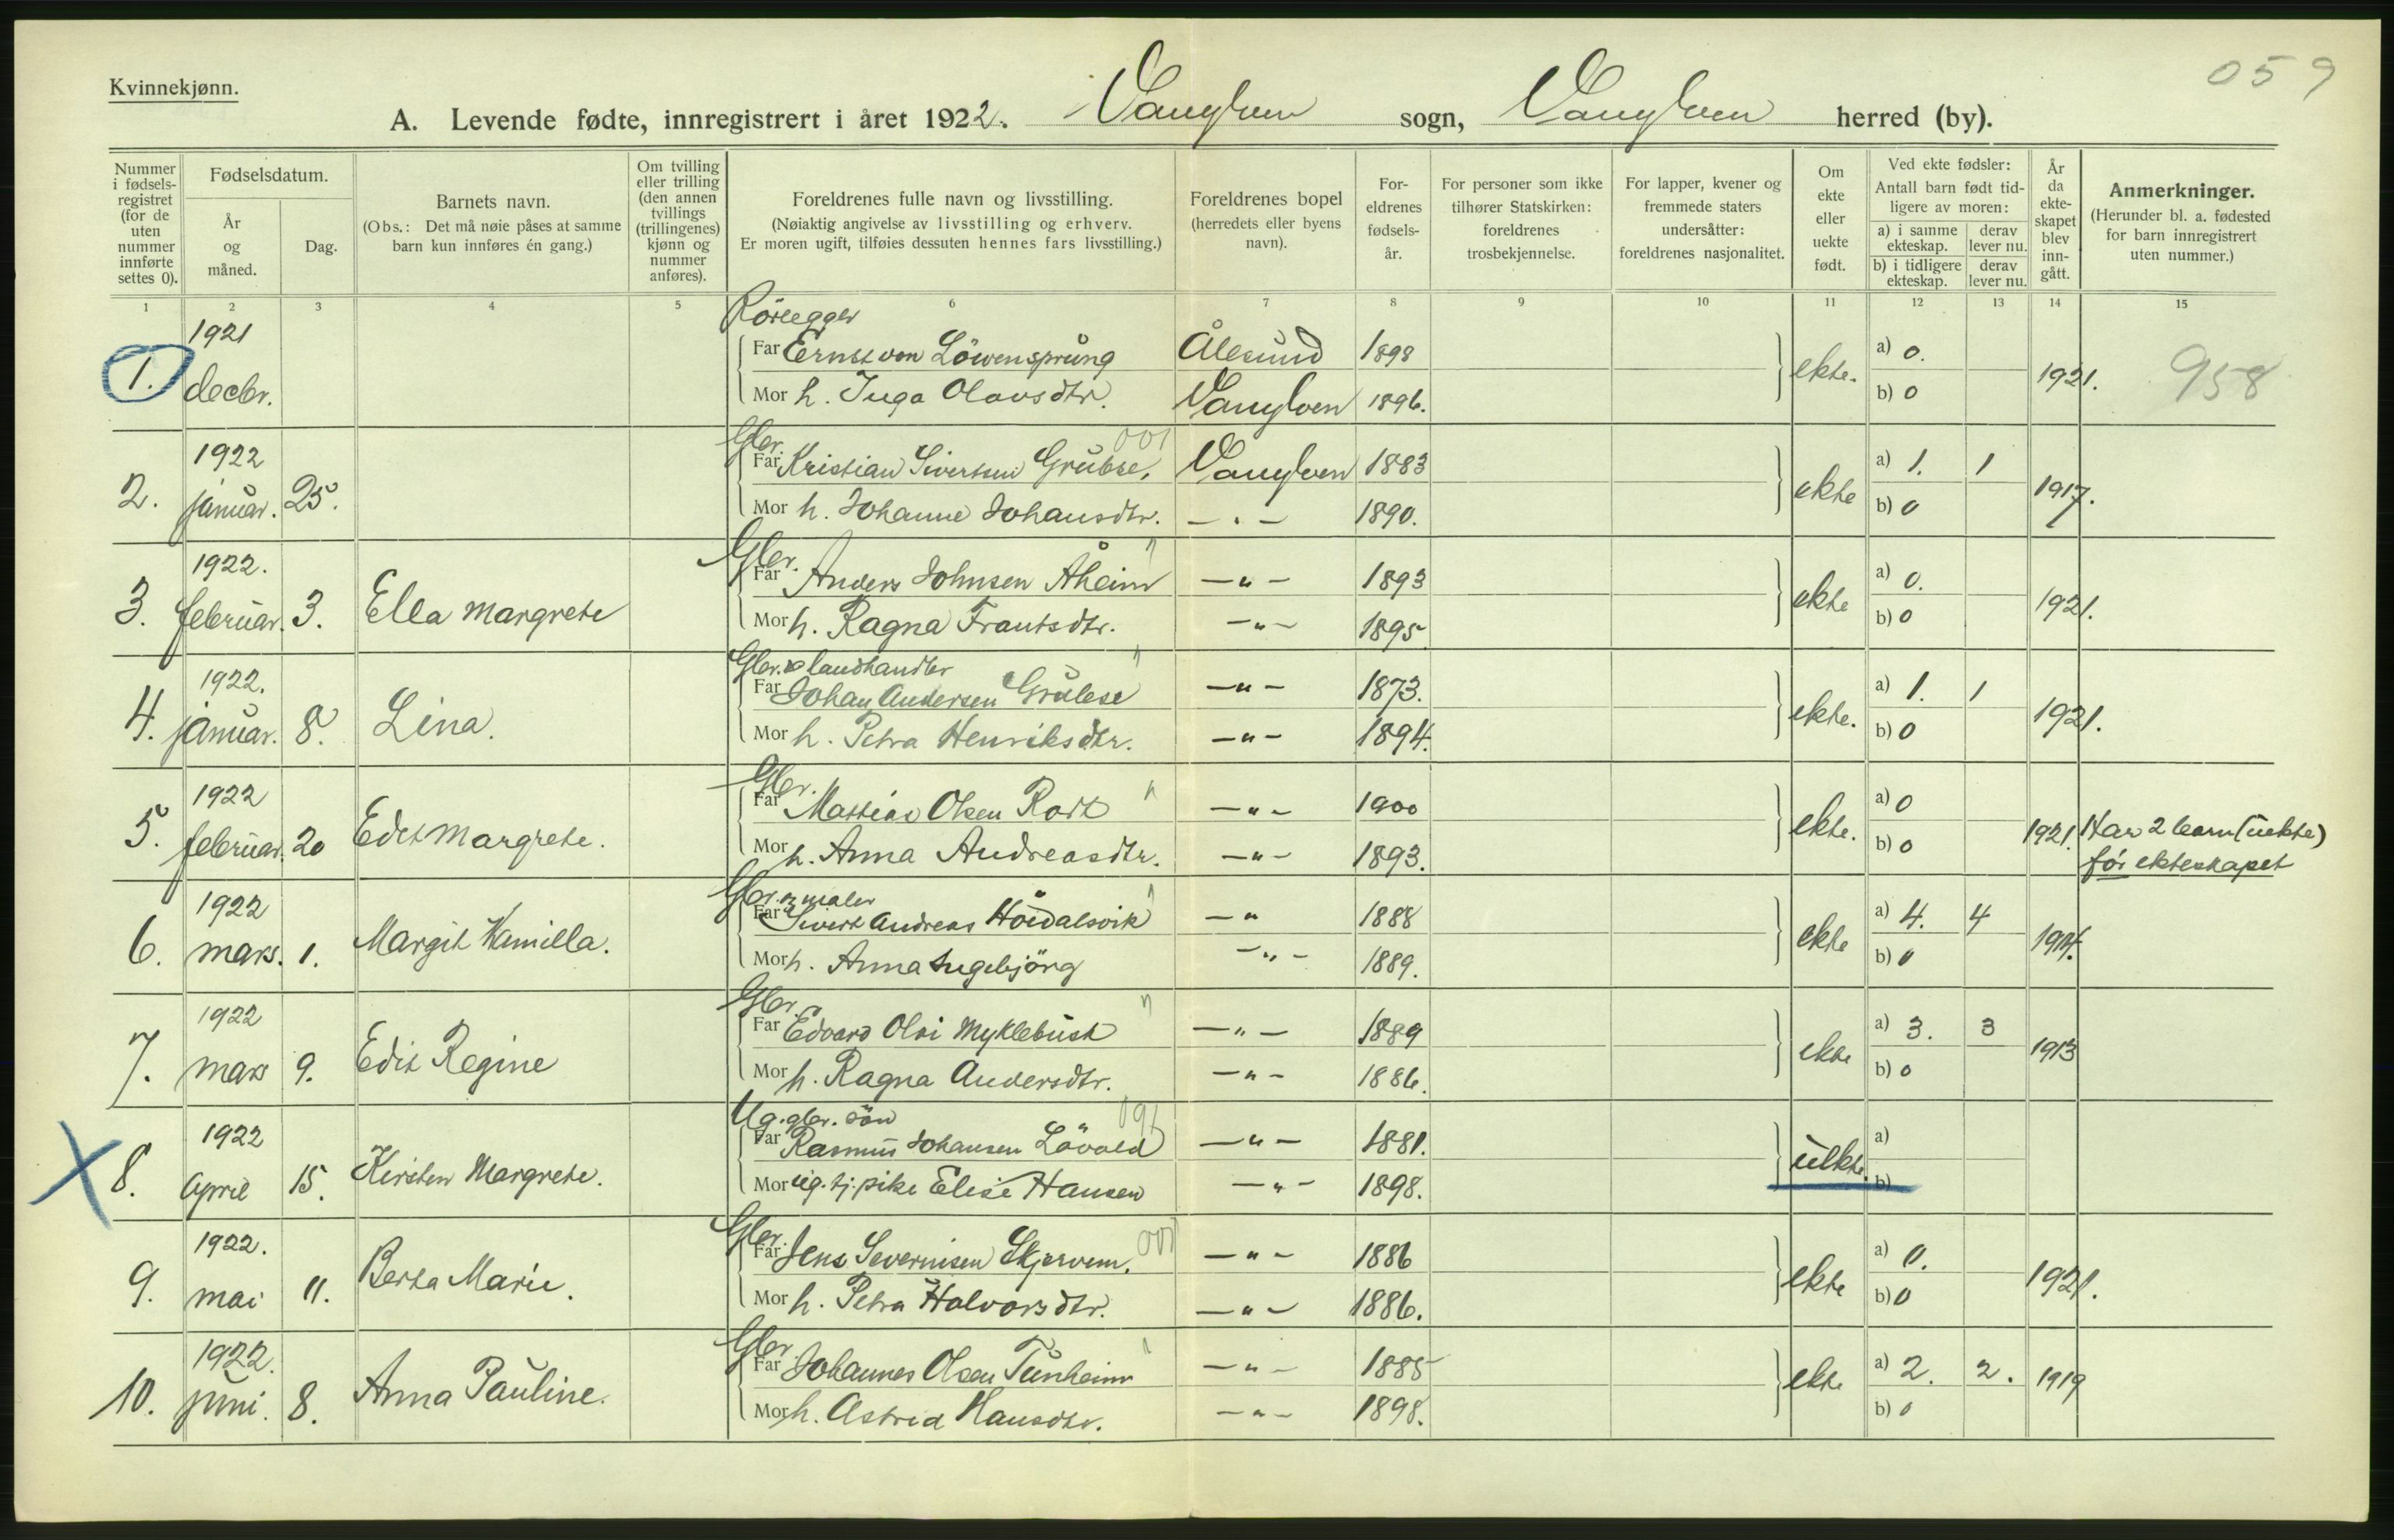 059
Kvinnekjønn.
A. Levende fødte, innregistrert i året 1922. Vanylven sogn, Vanylven herred (by).
Nummer i fødsels-registret (for de uten nummer innførte settes 0).
Fødselsdatum.
År og måned.
Dag.
Barnets navn.
(Obs.: Det må nøie påses at samme barn kun innføres én gang.)
Om tvilling eller trilling (den annen tvillings (trillingenes) kjønn og nummer anføres).
Foreldrenes fulle navn og livsstilling.
(Nøiaktig angivelse av livsstilling og erhverv.
Er moren ugift, tilføies dessuten hennes fars livsstilling.)
Foreldrenes bopel (herredets eller byens navn).
For-eldrenes fødsels-år.
For personer som ikke tilhører Statskirken: foreldrenes trosbekjennelse.
For lapper, kvener og fremmede staters undersåtter: foreldrenes nasjonalitet.
Om ekte eller uekte født.
Ved ekte fødsler:
Antall barn født tid-ligere av moren:
a) i samme ekteskap.
derav lever nu.
b) i tidligere ekteskap.
derav lever nu.
År da ekte-skapet blev inn-gått.
Anmerkninger.
(Herunder bl. a. fødested for barn innregistrert uten nummer.)
1 2 3 4 5 6 7 8 9 10 11 12 13 14 15
Rörlegger
1. 1921 decbr. Far Ernst von Löwensprung Ålesund 1898 ekte. a) 0. 1921. 958
Mor h. Inga Olavsdtr. Vanylven 1896. b) 0
Gbr. 001
2. 1922 januar. 25. Far Kristian Sivertsen Grubse, Vanylven 1883 ekte a) 1. 1 1917.
Mor h. Johanne Johansdtr. — . — 1890. b) 0
Gbr. "
3. 1922. februar. 3. Ella Margrete Far Anders Johnsen Åheim — " — 1893 ekte a) 0. 1921.
Mor h. Ragna Frantsdtr. — " — 1895 b) 0
Gbr. & landhandler "
4. 1922. januar. 8. Lina. Far Johan Andersen — " — 1873. ekte. a) 1. 1 1921.
Mor h. Petra Henriksdtr. — " — 1894. b) 0
Gbr. "
5. 1922 februar. 20 Edit Margrete. Far Mattias Olsen — " — 1900 ekte. a) 0 1921. Har 2 barn (uekte)
Mor h. Anna Andreasdtr. — " — 1893. b) 0 før ekteskapet
Gbr. & maler "
6. 1922 mars. 1. Margit Kamilla. Far Sivert Andreas Höidalsvik — " 1888 ekte a) 4. 4 1914.
Mor h. Anna Ingebjörg — " — 1889. b) 0
Gbr. "
7. 1922 mars 9. Edit Regine Far Edvard Olai Myklebust — " — 1889 ekte a) 3. 3 1913
Mor h. Ragna Andersdtr. — " — 1886. b) 0
Ug. gbr. sön 091
8. 1922 April 15. Kirsten Margrete. Far Rasmus Johansen Lövold — " — 1881. uekte. a)
Mor ug. tj. pike Elise Hansen — " — 1898. b)
Gbr. 001
9. 1922. mai 11. Berta Marie. Far Jens Severinsen Skjervem. — " — 1886 ekte a) 0. 1921.
Mor h. Petra Halvorsdtr. — " — 1886. b) 0
Gbr "
10. 1922. juni. 8. Anna Pauline. Far Johannes Olsen Tunheim — " — 1885 ekte a) 2. 2. 1919
Mor h. Astrid Hansdtr. — " — 1898. b) 0